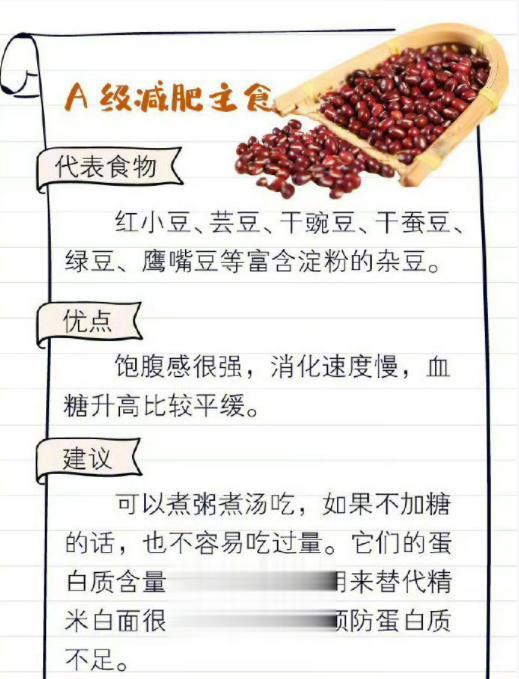 A级减肥主食
代表食物
红小豆、芸豆、干豌豆、干蚕豆、
绿豆、鹰嘴豆等富含淀粉的杂豆。
优点
饱腹感很强，消化速度慢，血
糖升高比较平缓。
建议
可以煮粥煮汤吃，如果不加糖
的话，也不容易吃过量。它们的蛋
白质含量 来替代精
米白面很 防蛋白质
不足。